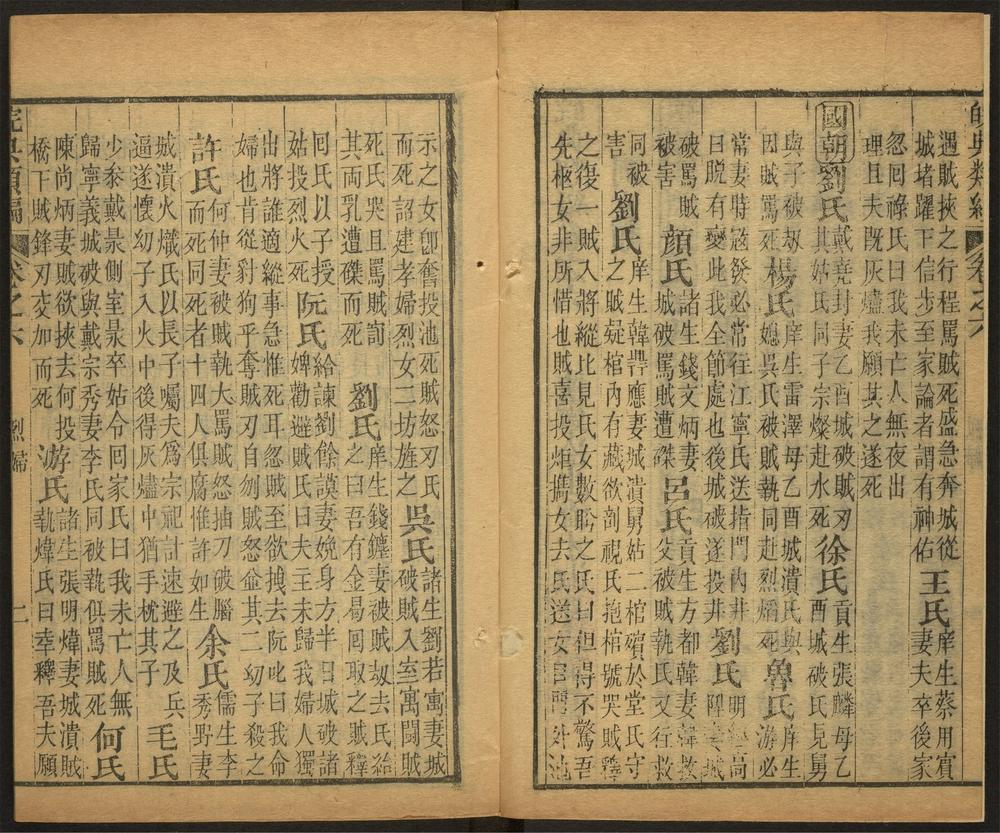 卷之六
遇賊挾之行程罵賊死盛急奔城從
城堵躍下信步至家論者謂有神佑
王氏
庠生蔡用賓
妻夫卒後家
忽囘祿氏曰我未亡人無夜出
理且夫既灰燼我願其之遂死
國朝
劉氏
戴堯封妻乙酉城破賊刃
其姑氏同子宗燦赴水死
徐氏
貢生張麟母乙
酉城破氏見舅
與子被刼
因賊罵死
楊氏
庠生雷澤母乙酉城潰氏與
媳吳氏被賊執同赴烈燄死
魯氏
庠生
游必
常妻時寇發必常往江寧氏送指門內井
日脫有變此我全節處也後城破遂投井
劉氏
破罵賊
被害
顏氏
諸生錢文炳妻
城破罵賊遭磔
呂氏
貢生方都韓妻韓
父被賊執氏又往救
同被
害
劉氏
庠生韓譽應妻城潰舅姑二棺殯於堂氏守
之賊疑棺內有藏欲剖視氏抱棺號哭賊釋
之復一賊入將縱比見氏女數盻之氏曰但得不驚吾
先柩女非所惜也賊喜投炬擕女去氏送女至門外池
示之女卽奮投池死賊怒刃氏
而死詔建孝婦烈女二坊旌之
吳氏
諸生劉若寓妻城
破賊入室寓鬪賊
死氏哭且罵賊訽
其両乳遭磔而死
劉氏
庠生錢鑵妻被賊刼去氏紿
之曰吾有金曷囘取之賊釋
囘氏以子授
姑投烈火死
阮氏
給諫劉餘謨妻娩身方半日城破諸
婢勸避賊氏曰夫主未歸我婦人獨
出將誰適縱事急惟死耳忽賊至欲拽去阮叱曰我命
婦也肯從豺狗乎奪賊刃自刎賊怒僉其二幼子殺之
許氏
何仲妻被賊執大罵賊怒抽刀破腦
而死同死者十四人俱腐惟許如生
余氏
儒生李
秀野妻
城潰火熾氏以長子囑夫爲宗祀計速避之及兵
逼遂懷幼子入火中後得灰燼中猶手枕其子
毛氏
少叅戴景側室景卒姑令囘家氏曰我未亡人無
歸寧義城破與戴宗秀妻李氏同被執俱罵賊死
何氏
陳尚炳妻賊欲挾去何投
橋下賊鋒刃交加而死
游氏
諸生張明煒妻城潰賊
執煒氏曰幸釋吾夫願
卷之六
烈婦
二